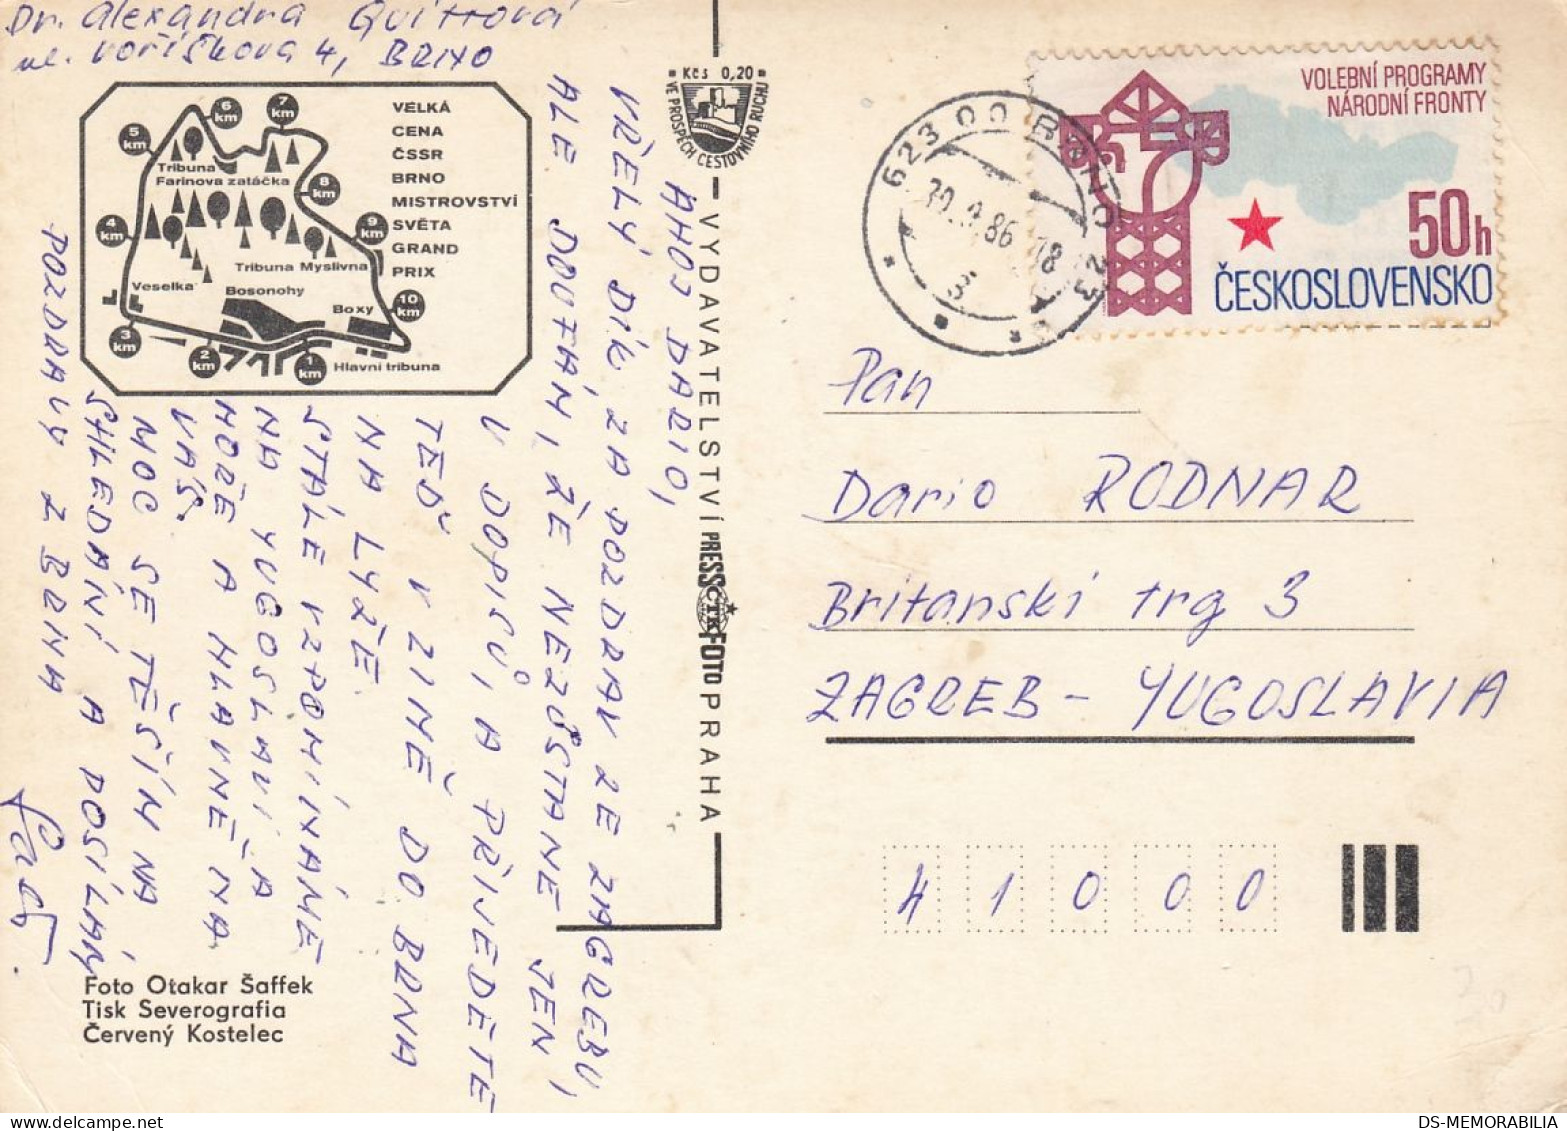 Dr. Alexandra Quittová
ul. Voříškova 4, BRNO
VELKÁ
CENA
ČSSR
BRNO
MISTROVSTVÍ
SVĚTA
GRAND
PRIX
6 km
7 km
5 km
Tribuna
Farinova zatáčka
8 km
4 km
9 km
Tribuna Myslivna
Veselka
Bosonohy
Boxy
10 km
3 km
2 km
1 km
Hlavní tribuna
AHOJ DARIO,
VŘELÝ DÍK ZA POZDRAV ZE ZAGREBU,
ALE DOUFÁM, ŽE NEZŮSTANE JEN
U DOPISŮ, A PŘIJEDETE
TEĎ V ZIMĚ DO BRNA
NA LYŽE.
STÁLE VZPOMÍNÁME
NA YUGOSLAVÍ A
MOŘE A HLAVNĚ NA
VÁS.
MOC SE TĚŠÍM NA
SHLEDÁNÍ A POSÍLÁM
POZDRAVY Z BRNA
Foto Otakar Šaffek
Tisk Severografia
Červený Kostelec
Kčs 0,20
VE PROSPĚCH CESTOVNÍHO RUCHU
VYDAVATELSTVÍ PRESSFOTO PRAHA
ČTK
623 00 BRNO 23
30.9.86 18
3
VOLEBNÍ PROGRAMY
NÁRODNÍ FRONTY
50h
ČESKOSLOVENSKO
Pan
Dario RODNAR
Britanski trg 3
ZAGREB - YUGOSLAVIA
41000
DS-MEMORABILIA